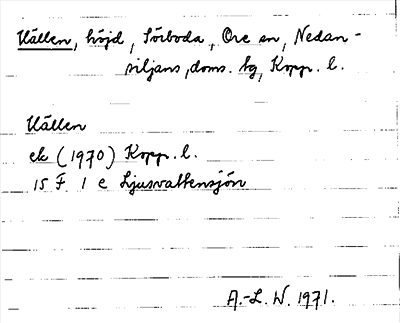 Hällen, höjd, Sörboda, Ore sn, Nedan-
siljans, doms. hg, Kopp. l.
Hällen
ek (1970) Kopp. l.
15 F 1 e Ljusvattensjön
A.-L. W. 1971.